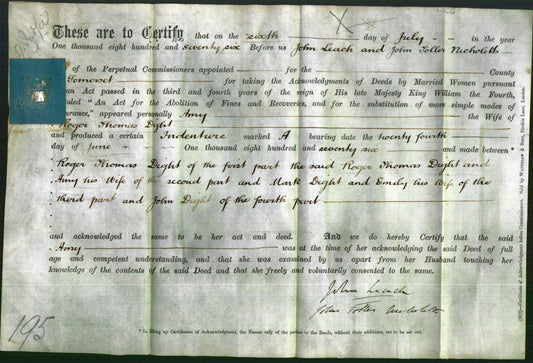 These are to Certify that on the sixth day of July in the year
One thousand eight hundred and seventy six Before us John Leach and John Toller Nicholetts
of the Perpetual Commissioners appointed for the County
Somerset for taking the Acknowledgments of Deeds by Married Women pursuant
an Act passed in the third and fourth years of the reign of His late Majesty King William the Fourth,
"An Act for the Abolition of Fines and Recoveries, and for the substitution of more simple modes of
" appeared personally Amy the Wife of
Roger Thomas Dight
and produced a certain Indenture marked A bearing date the twenty fourth
day of June One thousand eight hundred and seventy six and made between *
Roger Thomas Dight of the first part the said Roger Thomas Dight and
Amy his Wife of the second part and Mark Dight and Emily his Wife of the
third part and John Dight of the fourth part
and acknowledged the same to be her act and deed. And we do hereby Certify that the said
Amy was at the time of her acknowledging the said Deed of full
age and competent understanding, and that she was examined by us apart from her Husband touching her
knowledge of the contents of the said Deed and that she freely and voluntarily consented to the same.
John Leach
John Toller Nicholetts
* In filling up Certificates of Acknowledgment, the Names only of the parties to the Deeds, without their additions, are to be set out.
195